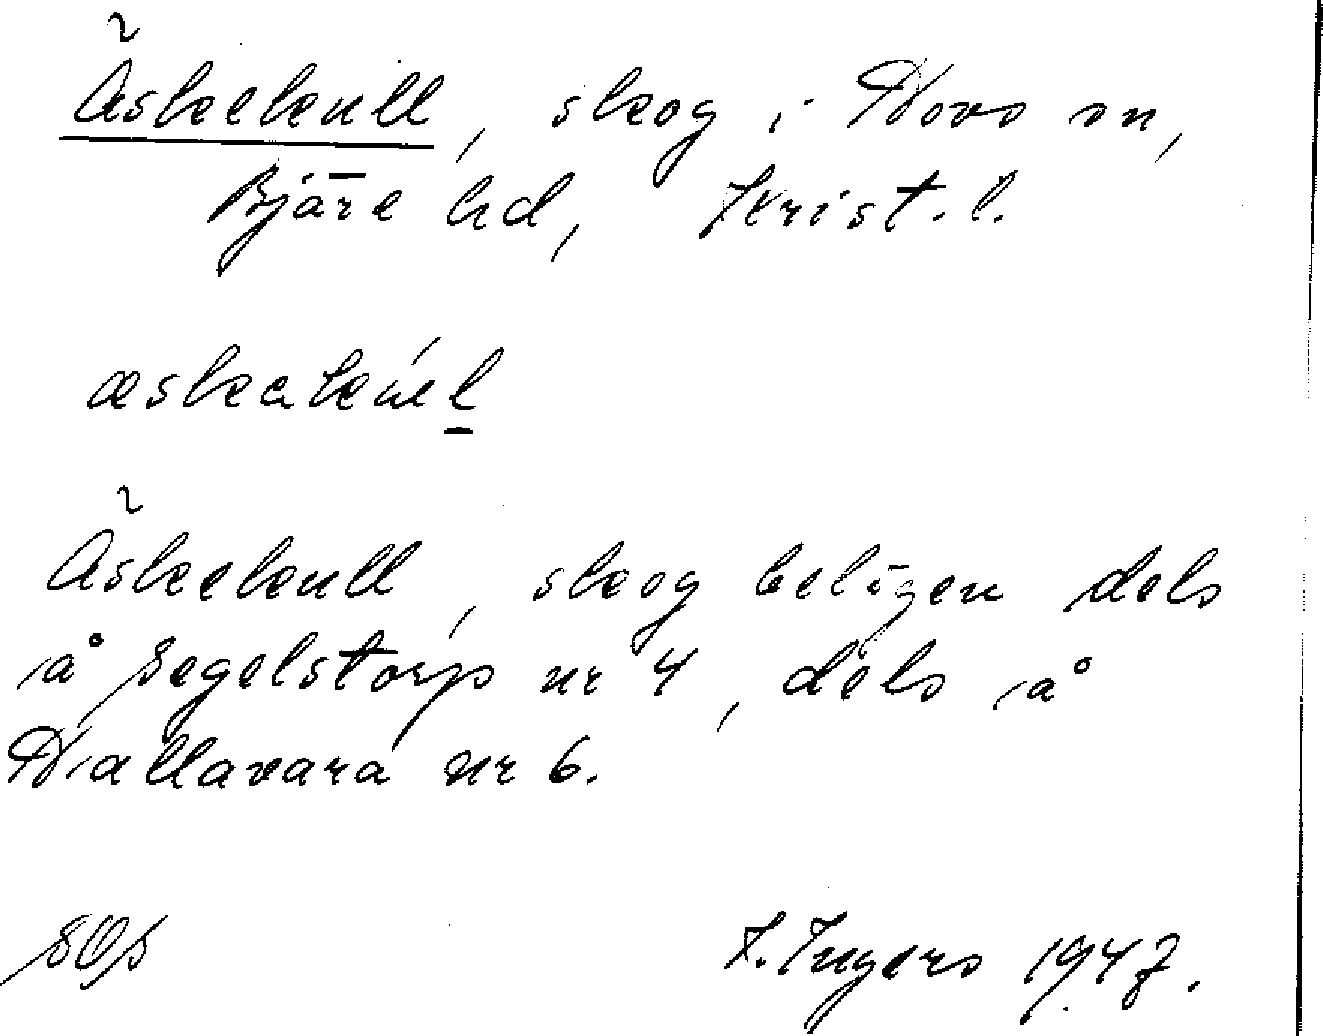 Äskekull, skog i Hovs sn,
Bjäre hd, Krist. l.
æskakúl
Äskekull, skog belägen dels
å Segelstorp nr 4, dels å
Hallavara nr 6.
I. Ingers 1947.